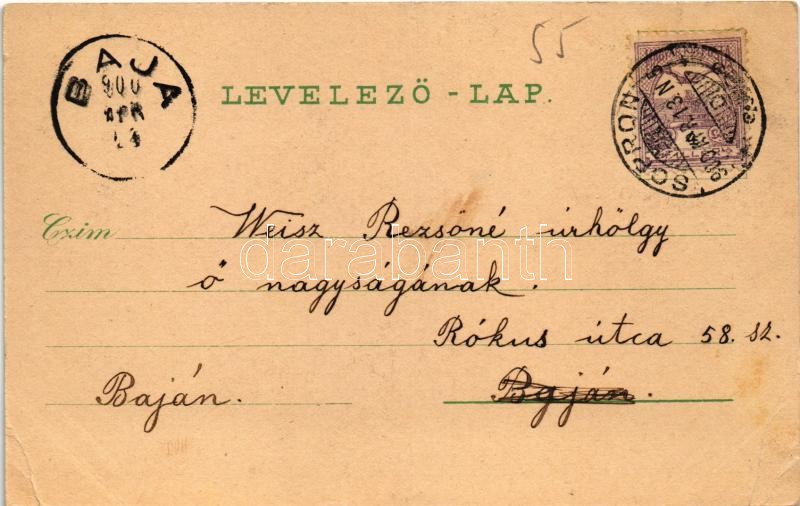 55
BAJA
900
APR
14
LEVELEZŐ - LAP.
SOPRON
900 APR. 13 N 5
Czim
Weisz Rezsőné úrhölgy
ő nagyságának.
Rókus útca 58. sz.
Baján. Baján.
darabanth